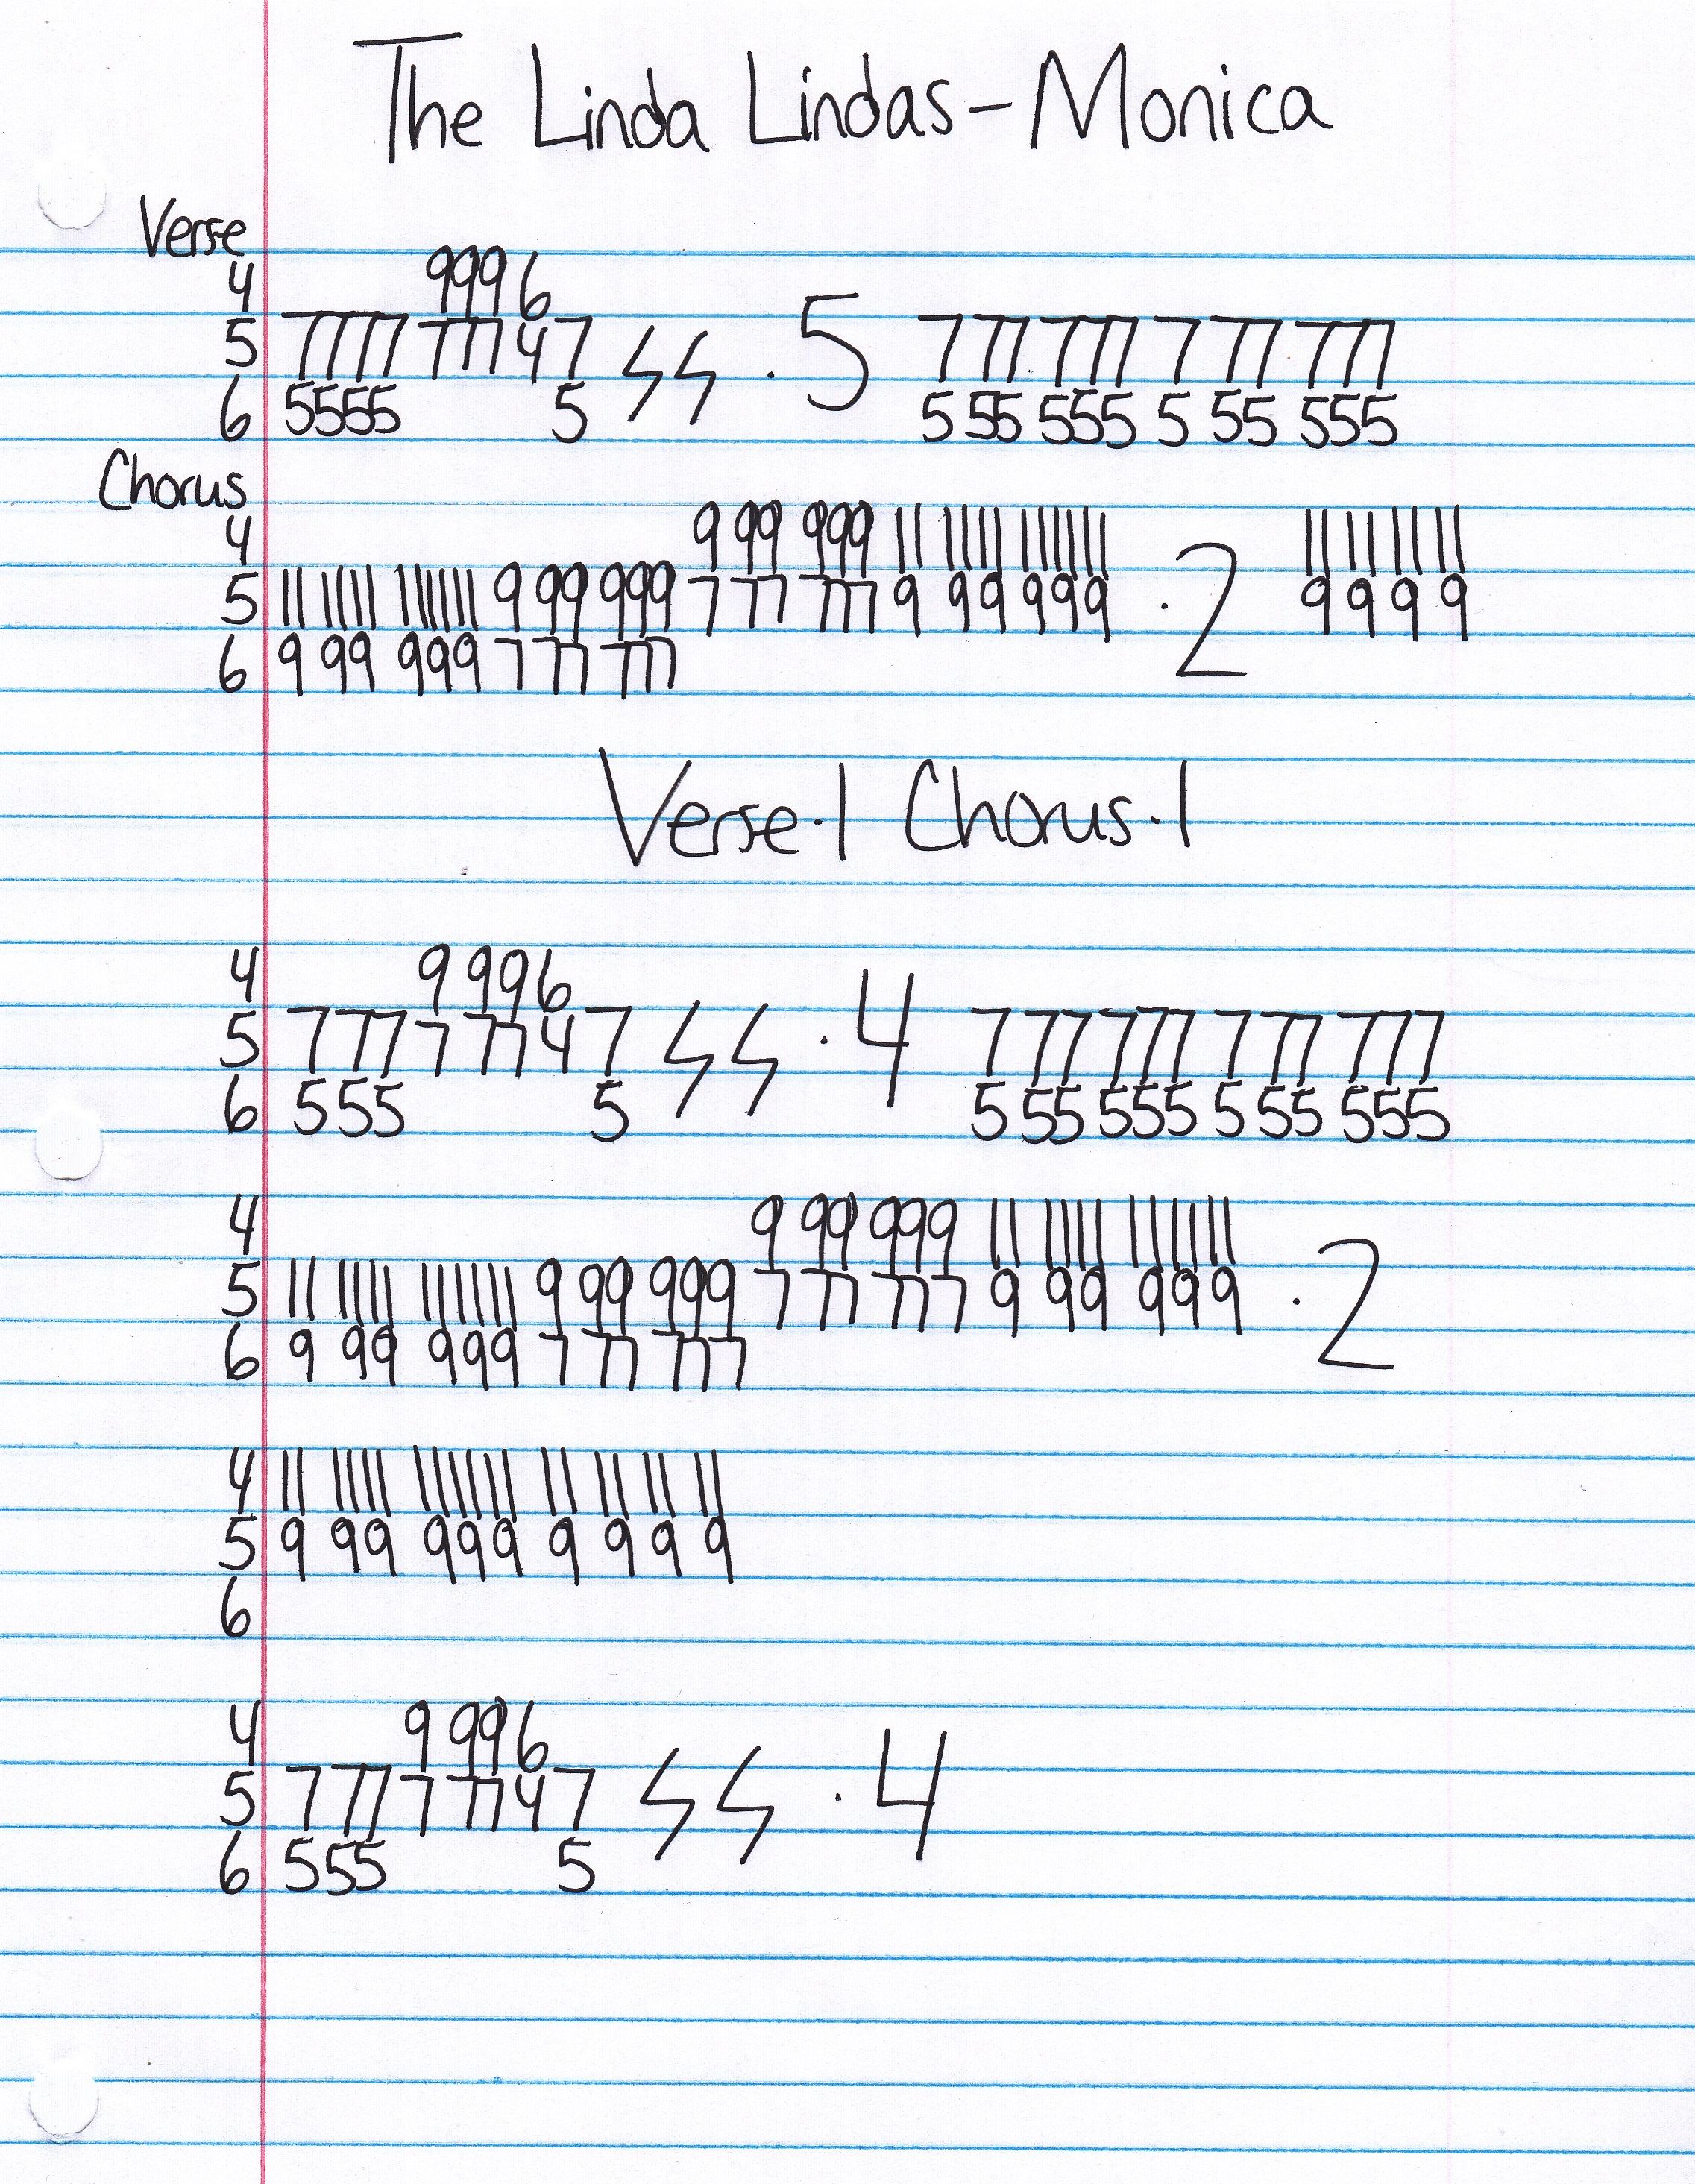 The Linda Lindas - Monica
Verse
4 999 6
5 7777 777 4 7 ϟϟ · 5 7 77 777 7 77 777
6 5555 5 5 55 555 5 55 555
Chorus
4 9 99 999 11 1111 111111 · 2 11 11 11 11
5 11 1111 111111 9 99 999 7 77 777 9 99 999 9 9 9 9
6 9 99 999 7 77 777
Verse · 1 Chorus · 1
4 9 99 6
5 7 77 7 77 4 7 ϟϟ · 4 7 77 777 7 77 777
6 5 55 5 5 55 555 5 55 555
4 9 99 999 11 1111 111111
5 11 1111 111111 9 99 999 7 77 777 9 99 999 · 2
6 9 99 999 7 77 777
4 11 1111 111111 11 11 11 11
5 9 99 999 9 9 9 9
6
4 9 99 6
5 7 77 7 77 4 7 ϟϟ · 4
6 5 55 5